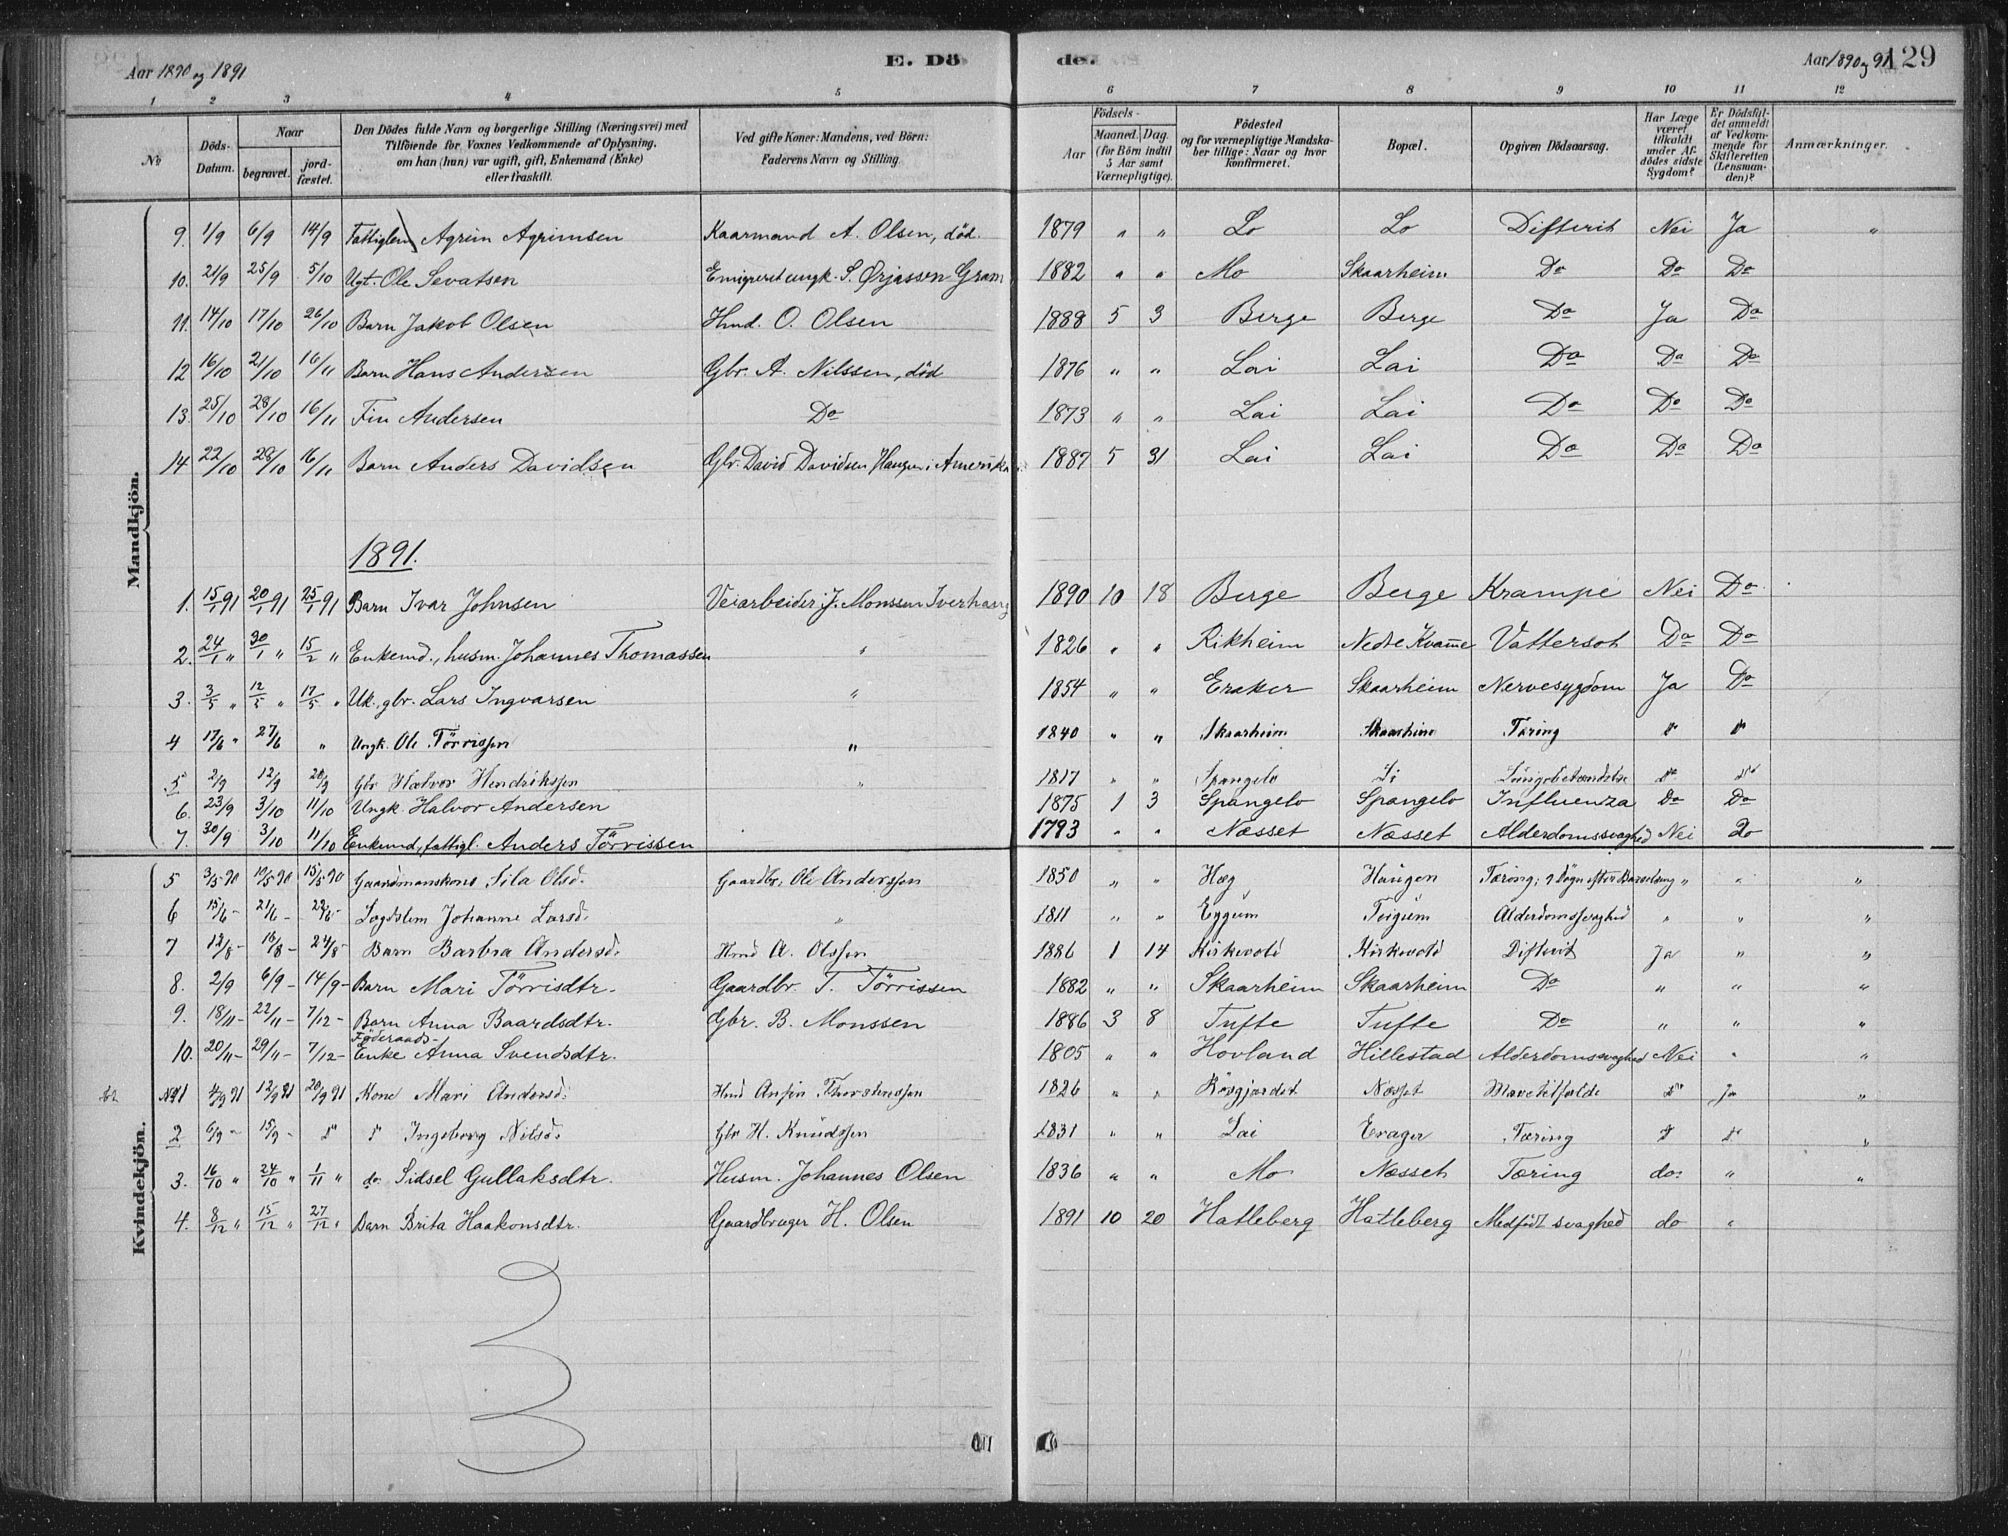 Aar 1890 og 1891 E. Döde. Aar 1890 og 91 129
1 2 3 4 5 6 7 8 9 10 11 12
No Döds-Datum. Naar begravet. jordfæstet. Den Dödes fulde Navn og borgerlige Stilling (Næringsvei) med Tilföiende for Voxnes Vedkommende af Oplysning, om han (hun) var ugift, gift, Enkemand (Enke) eller fraskilt. Ved gifte Koner: Mandens, ved Börn: Faderens Navn og Stilling. Födsels- Aar Maaned. Dag. (for Börn indtil 5 Aar samt Værnepligtige). Födested og for værnepligtige Mandskaber tillige: Naar og hvor konfirmeret. Bopæl. Opgiven Dödsaarsag. Har Læge været tilkaldt under Afdödes sidste Sygdom? Er Dödsfaldet anmeldt af Vedkommende for Skifteretten (Lensmanden)? Anmærkninger.
Mandkjön.
9. 1/9 6/9 14/9 Fattiglem) Agrim Agrimsen Kaarmand A. Olsen, död. 1879 " " Lo Lo Difterit Nei Ja "
10. 21/9 25/9 5/10 Ugt. Ole Sevatsen Emigreret ungk. S. Ørjassen Gram 1882 " " Mo Skaarheim Do Do Do
11. 14/10 17/10 26/10 Barn Jakob Olsen Hmd. O. Olsen 1888 5 3 Berge Berge Do Ja Do
12 16/10 21/10 16/11 Barn Hans Andersen Gbr. A. Nilssen, död 1876 " " Lai Lai Do Do Do
13. 25/10 28/10 16/11 Fin Andersen Do 1873 " " Lai Lai Do Do Do
14 22/10 28/10 16/11 Barn Anders Davidsen Gbr. David Davidsen Haugen i Amerika 1887 5 31 Lai Lai Do Do Do
1891.
1. 15/1 91 20/1 91 25/1 91 Barn Ivar Johnsen Veiarbeider J. Monssen Iverhaug 1890 10 18 Berge Berge Krampe Nei Do
2. 24/1 " 30/1 " 15/2 " Enkemd., husm. Johannes Thomassen " 1826 " " Rikheim Nedre Kvamme Vattersot Do Do
3. 3/5 " 12/5 " 17/5 " Uk., gbr. Lars Ingvarsen " 1854 " " Eraker Skaarheim Nervesygdom Ja Do
4 17/6 " 27/6 " Ungk. Ole Törrissen " 1840 " " Skaarheim Skaarheim Tæring do do
5 2/9 12/9 20/9 Gbr Halvor Hendriksen " 1817 " " Spangelo Li Lungebetændelse Do do
6. 23/9 3/10 11/10 Ungk. Halvor Andersen 1875 1 3 Spangelo Spangelo Influenza Do Do
7. 30/9 3/10 11/10 Enkemd, fattigl. Anders Törrissen 1793 " " Næsset Næsset Alderdomssvaghed Nei Do
Kvindekjön.
5 3/5 90 10/5 90 15/5 90 Gaardmanskone Sila Olsd. Gaardbr. Ole Anderssen 1850 " " Hæg Haugen Tæring; 9 Døgn efter Barselseng " " "
6 15/6 - 21/6 - 29/6 - Lægdslem Johanne Larsd. " 1811 " " Eggum Teigum Alderdomssvaghed " " "
7 12/8 - 16/8 - 24/8 - Barn Barbra Andersd. Hmd A. Olssen 1886 1 14 Kirkevold Kirkevold Difterit Ja " "
8. 2/9 6/9 - 14/9 - Barn Mari Törrisdtr. Gaardbr. T. Törrissen 1882 " " Skaarheim Skaarheim Do " " "
9. 18/11 - 22/11 - 7/12 - Barn Anna Baardsdtr. Gbr. B. Monssen 1886 3 8 Tufte Tufte Do " " "
10. 20/11 - 29/11 - 7/12 - Föderaads-Enke Anna Svendsdtr. 1805 " " Hovland Hillestad Alderdomssvaghed Nei " "
No 1 4/9 91 12/9 91 20/9 91 Kone Mari Andersd. Hmd Ansin Thorstenssen 1826 " " Næsset Mavetilfælde do Ja "
2 6/9 - 15/9 - do do Ingeborg Nilsd. Gbr H. Knudssen 1831 " " Lai Erager Tæring do do "
3. 16/10 " 24/10 " 1/11 " do Sidsel Gullaksdtr. Husm. Johannes Olsen 1836 " " Mo Næsset Tæring do. " "
4. 8/12 " 15/12 " 27/12 " Barn Brita Haakonsdtr. Gaardbruger H. Olsen 1891 10 20 Hatleberg Hatleberg Medfödt svaghed do "